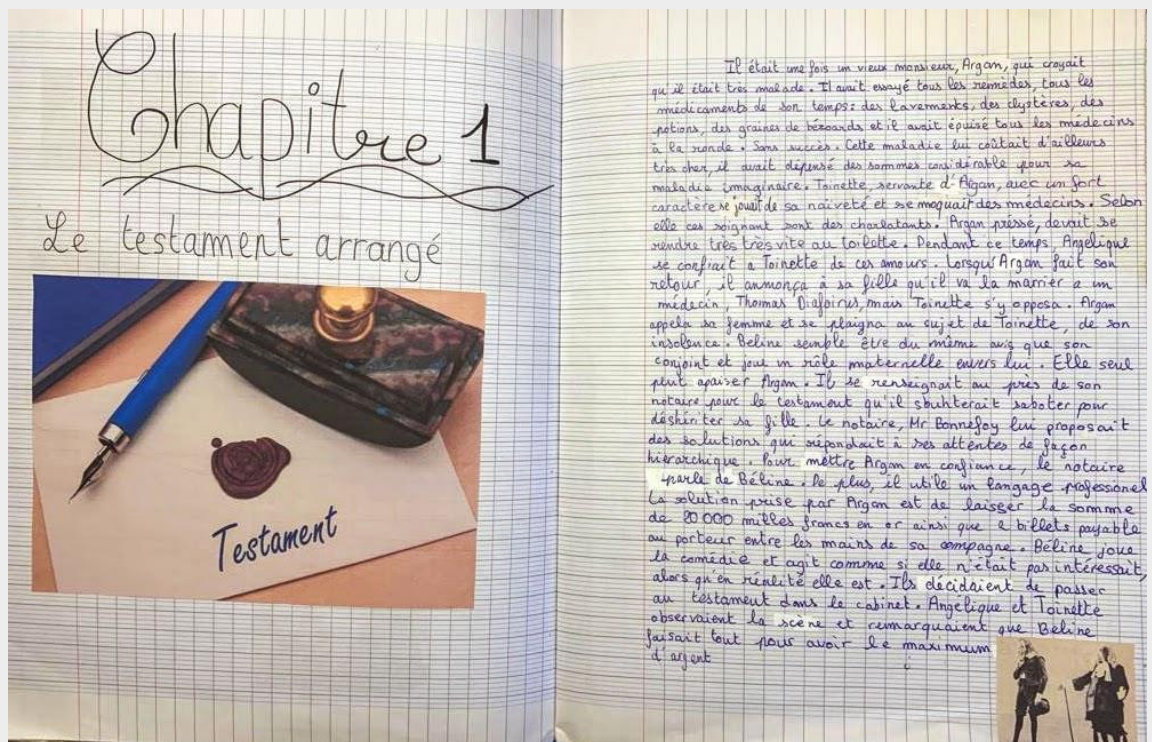 Chapitre 1
Le testament arrangé
Testament
Il était une fois un vieux monsieur, Argan, qui croyait
qu'il était très malade. Il avait essayé tous les remèdes, tous les
médicaments de son temps: des lavements, des clystères, des
potions, des graines de bézoards et il avait épuisé tous les médecins
à la ronde. Sans succès. Cette maladie lui coûtait d'ailleurs
très cher, il avait dépensé des sommes considérable pour sa
maladie imaginaire. Toinette, servante d'Argan, avec un fort
caractère se jouait de sa naïveté et se moquait des médecins. Selon
elle ces soignant sont des charlatants. Argan pressé, devait se
rendre très très vite au toilette. Pendant ce temps, Angélique
se confiait a Toinette de ces amours. Lorsqu'Argan fait son
retour, il annonça à sa fille qu'il va la marrier a un
médecin, Thomas Diafoirus, mais Toinette s'y opposa. Argan
appela sa femme et se plaigna au sujet de Toinette, de son
insolence. Béline semble être du même avis que son
conjoint et joue un rôle maternelle envers lui. Elle seul
peut apaiser Argan. Il se renseignait au près de son
notaire pour le testament qu'il souhterait saboter pour
déshériter sa fille. Le notaire, Mr Bonnefoy lui proposait
des solutions qui répondait à ses attentes de façon
hiérarchique. Pour mettre Argan en confiance, le notaire
parle de Béline. De plus, il utile un langage professionel
La solution prise par Argan est de laisser la somme
de 20 000 milles francs en or ainsi que 2 billets payable
au porteur entre les mains de sa compagne. Béline joue
la comédie et agit commme si elle n'était pas intéressait,
alors qu'en réalité elle est. Ils décidaient de passer
au testament dans le cabinet. Angélique et Toinette
observaient la scène et remarquaient que Béline
faisait tout pour avoir le maximum
d'argent